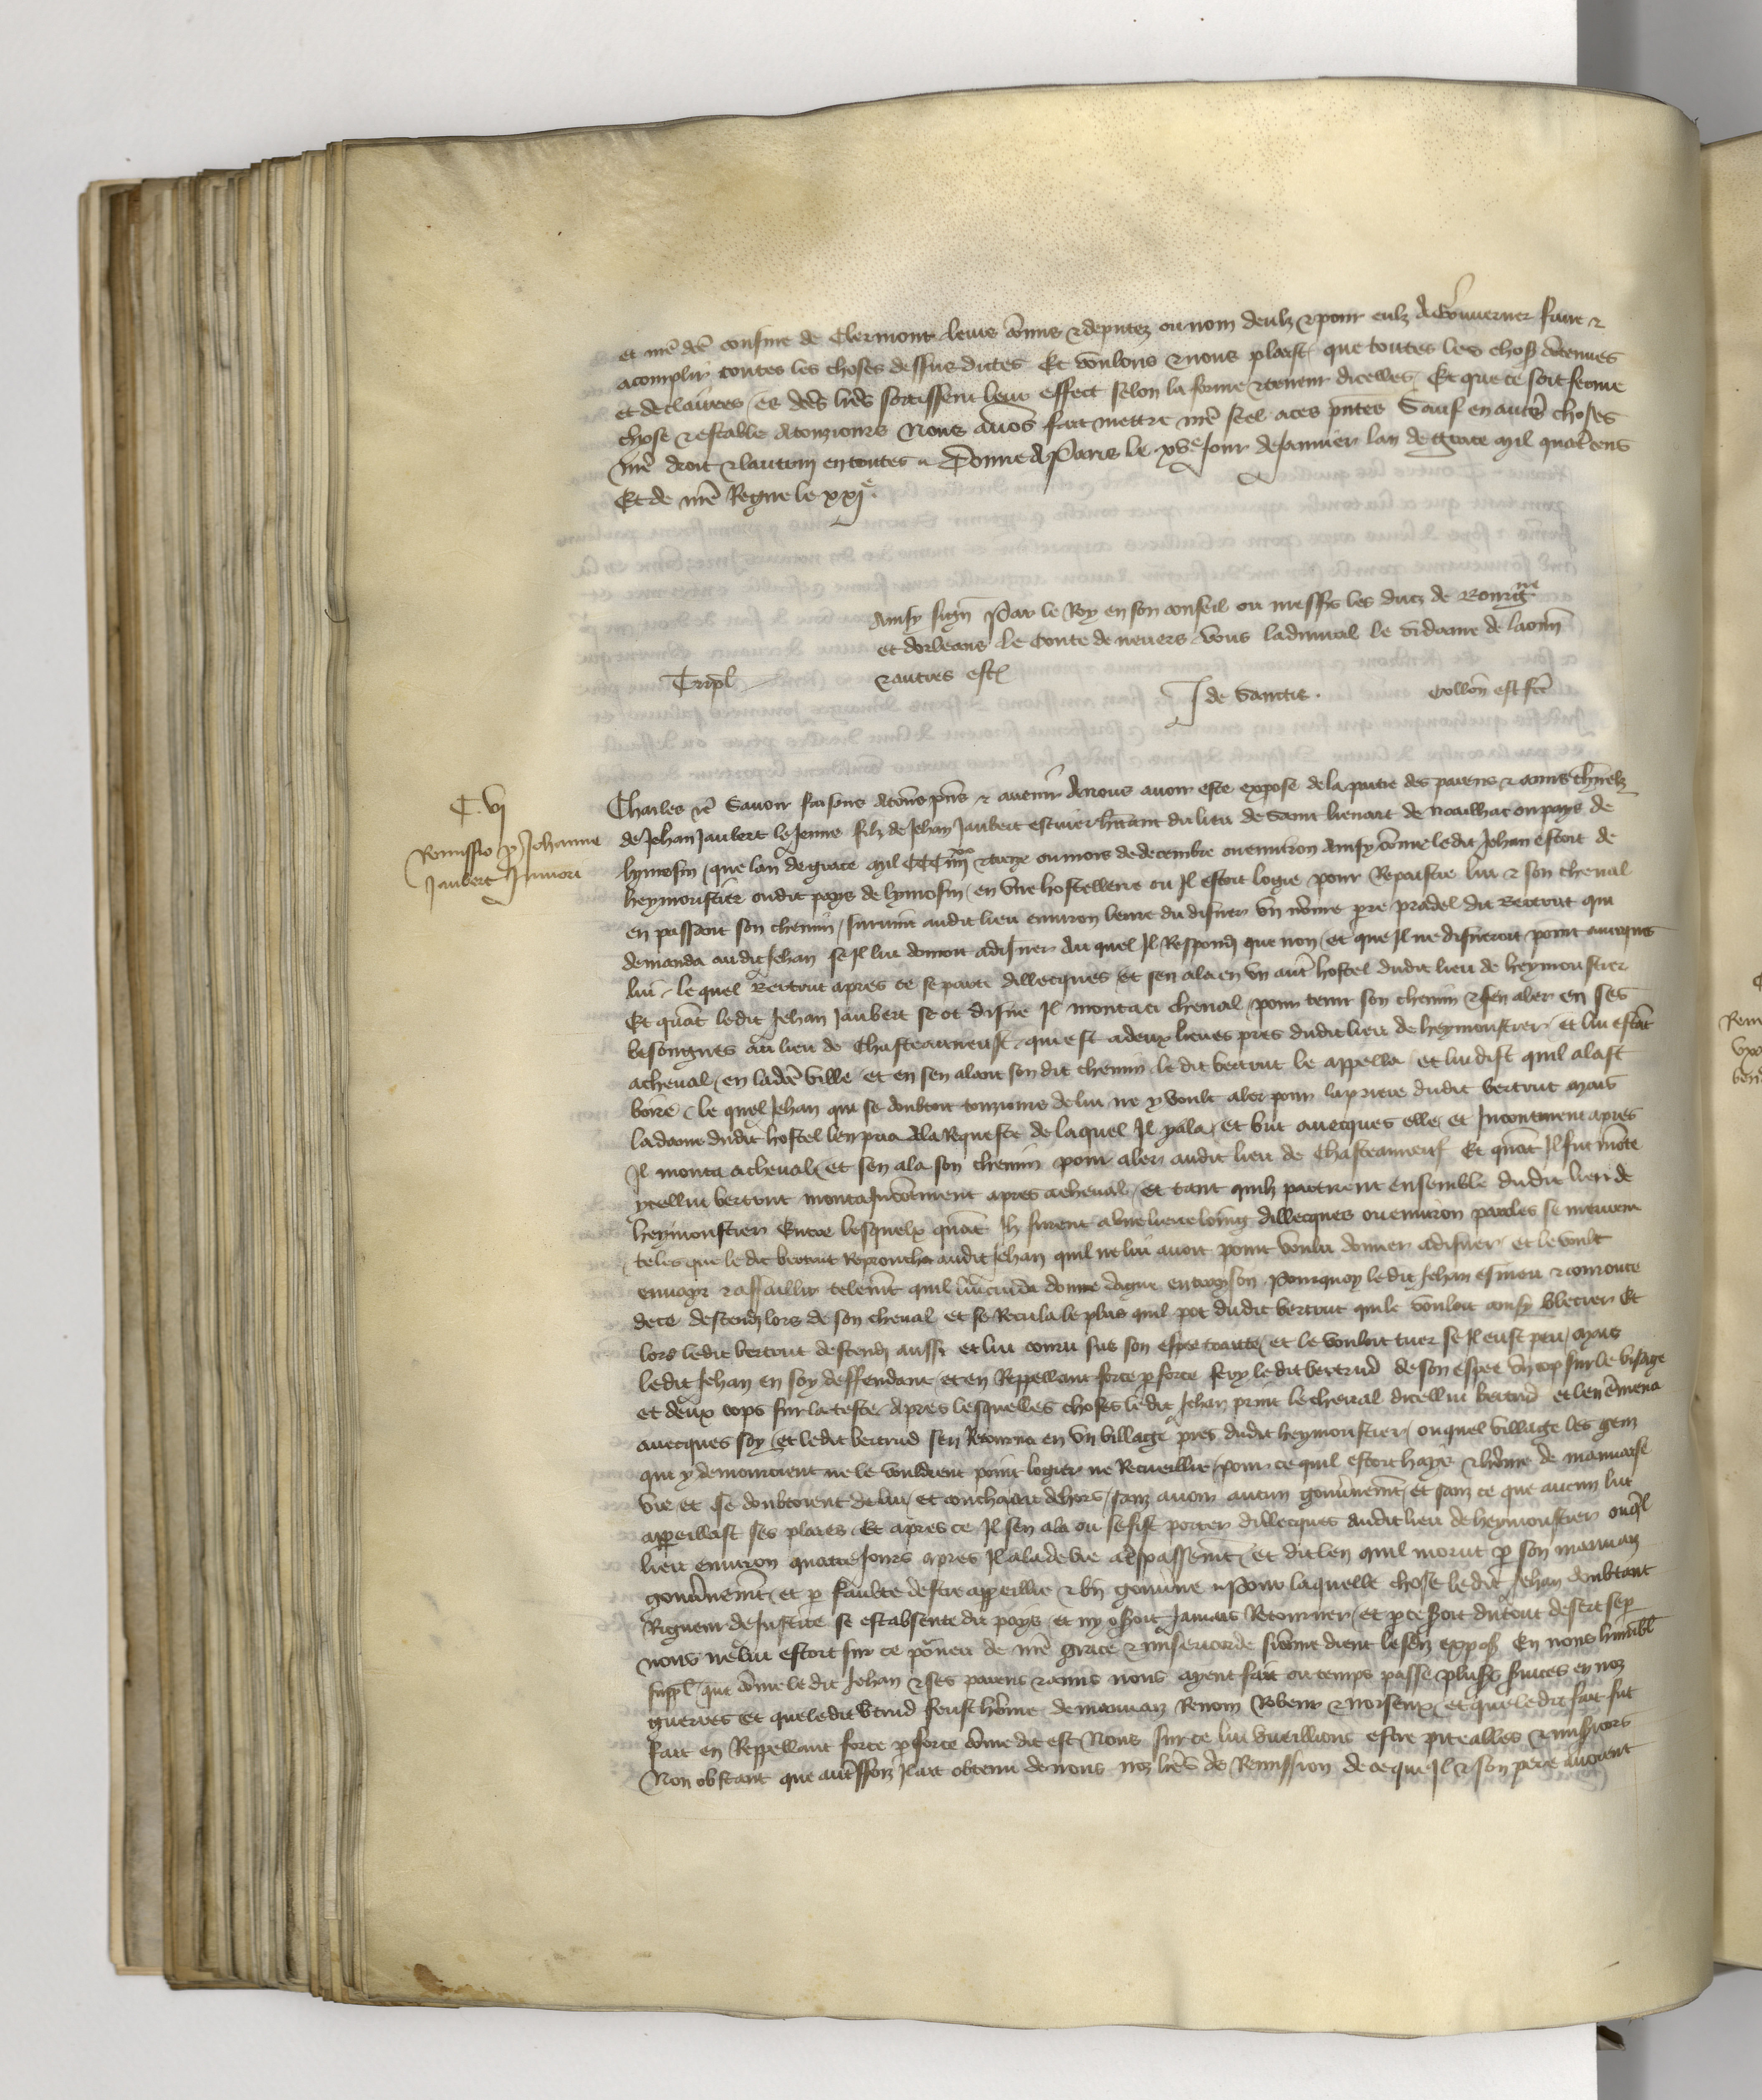 et nre dce cousine de Clermont leurs comis & deputez ou nom deulz & pour eulz A Gouverner faire &
acomplir toutes les choses dessus dictes Et voulons & nous plaist que toutes les choses contenues
et declairees es dces lres sortissent leur effect selon la forme & teneur dicelles Et que ce soit ferme
chose & estable Atousiours Nous avons fait mettre nre seel a ces pntes Sauf en autres choses
nre droit & lautrui en toutes Donne A Paris le xve Jour de Janvier lan de grace mil quatre cens
Et de nre Regne le xxje
Ainsi sign Par le Roy en son conseil ou messrs les ducz de Bourgne
et dorleans le Conte de nevers vous ladmiral le vidame de laonn
& autres est
Tripl
J de Sanctis
Collon est fce
C vj
Remissio p Johanne
Jaubert Juniori
Charles &c Savoir faisons Atous pns & avenir A nous avoir este expose de la partie des parens & amis charnelz
de Jehan Jaubert le Jeune filz de Jehan Jaubert escuier hitant du lieu de Saint lienart de noailhac ou pays de
lymosin que lan de grace mil CCC iiijxx & treze ou mois de decembre ou environ Ainsi come ledit Jehan estoit de
heymoustier oudit pays de lymosin en une hostellerie ou Il estoit logie pour Repaistre lui & son cheval
en passant son chemin survint audit lieu environ leure du disner un nome pre pradel dit Bertrut qui
demanda audit Jehan se Il lui donroit a disner Au quel Il Respondi que non et que Il ne disneroit point avecques
lui lequel Bertrut apres ce se parti dillecques et sen ala en un autre hostel dudit lieu de heymoustier
Et quant ledit Jehan Jaubert se ot disne Il monta a cheval pour tenir son chemin & sen aler en ses
besongnes au lieu de Chasteauneuf qui est a deux lieues pres dudit lieu de heymoustier et lui estant
a cheval en ladce ville et en sen alant son dit chemin le dit bertrut le appella et lui dist quil alast
boire le quel Jehan qui se doubtoit tousiours de lui ne y voult aler pour la priere dudit bertrut mais
la dame dudit hostel len pria A la Requeste de laquel Il y ala et but avecques elle et Incontinent apres
Il monta a cheval et sen ala son chemin pour aler audit lieu de Chasteauneuf Et quant Il fut monte
ycellui bertrut monta Incontinent apres a cheval et tant quilz partirent ensemble dudit lieu de
heymoustier Entre lesquelx quant Ilz furent a une lieue loing dillecques ou environ paroles se meurent
teles que le dit bertrut Reproucha audit Jehan quil ne lui avoit point voulu donner a disner et le voult
envayr & assaillir telement quil lui cuida donner dague en trayson Pourquoy ledit Jehan esmeu & couroucie
de ce descendi lors de son cheval et se Recula le plus quil pot dudit bertrut qui le vouloit ainsi blecier Et
lors ledit bertrut descendi aussi et lui couru sus son espee traicte et le vouloit tuer se Il eust peu Mais
ledit Jehan en soy deffendant et en Reppellant force p force fery ledit bertrud de son espee un cop sur le visage
et deux cops sur la teste Apres lesquelles choses ledit Jehan print le cheval dicellui bertrud et len emena
avecques soy Et ledit bertrud sen Retourna en un village pres dudit heymoustier ouquel village les gens
qui y demouroient ne le vouldrent point logier ne Recueillir pour ce quil estoit hayz & home de mauvaise
vie et se doubtoient de lui et coucha dehors sanz avoir aucun gouvnement et sanz ce que aucun lui
appeillast ses plaies Et apres ce Il sen ala ou se fist porter dillecques audit lieu de heymoustier ouql
lieu environ quatre Jours apres Il ala de vie a trespassement et dit len quil morut p son mauvaiz
gouvnement et p faulte destre appeillie & bn gouvne Pour laquelle chose ledit Jehan doubtant
Rigueur de Justice se est absente du pays et ny oseroit Jamais Retourner et p ce seroit du tout desert se p
nous ne lui estoit sur ce pourveu de nre grace & misericorde sicome dient lesdiz expos En nous humbl
suppl que come ledit Jehan & ses parens & amis nous ayent fait ou temps passe plusrs services en noz
guerres et que ledit bertrud feust home de mauvaiz Renom Robeur & noiseux et que ledit fait fut
fait en Reppellant force p force come dit est Nous sur ce lui vueillions estre piteables & misericors
Non obstant que autreffoiz Il ait obtenu de nous noz lres de Remission de ce que Il & son pere avoient